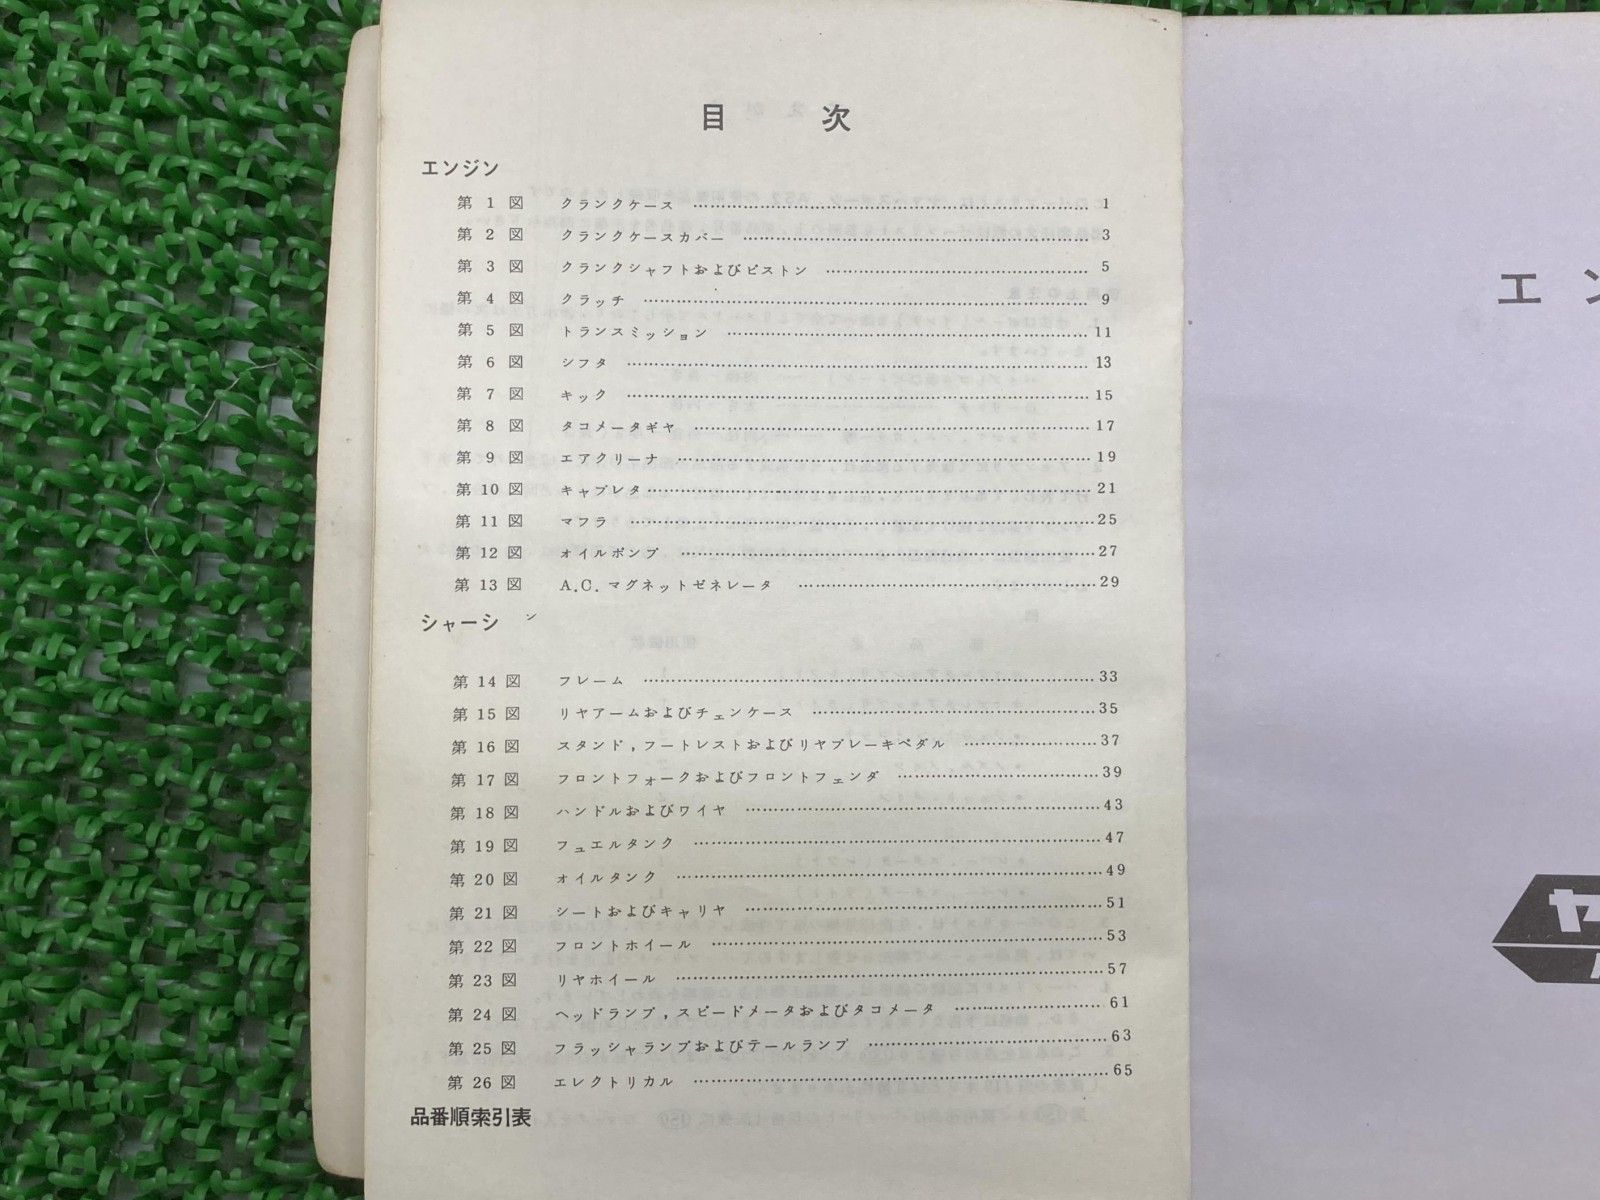 目次
エンジン
第 1 図 クランクケース 1
第 2 図 クランクケースカバー 3
第 3 図 クランクシャフトおよびピストン 5
第 4 図 クラッチ 9
第 5 図 トランスミッション 11
第 6 図 シフタ 13
第 7 図 キック 15
第 8 図 タコメータギヤ 17
第 9 図 エアクリーナ 19
第 10 図 キャブレタ 21
第 11 図 マフラ 25
第 12 図 オイルポンプ 27
第 13 図 A.C. マグネットゼネレータ 29
シャーシン
第 14 図 フレーム 33
第 15 図 リヤアームおよびチェンケース 35
第 16 図 スタンド,フートレストおよびリヤブレーキペダル 37
第 17 図 フロントフォークおよびフロントフェンダ 39
第 18 図 ハンドルおよびワイヤ 43
第 19 図 フュエルタンク 47
第 20 図 オイルタンク 49
第 21 図 シートおよびキャリヤ 51
第 22 図 フロントホイール 53
第 23 図 リヤホイール 57
第 24 図 ヘッドランプ,スピードメータおよびタコメータ 61
第 25 図 フラッシャランプおよびテールランプ 63
第 26 図 エレクトリカル 65
品番順索引表
エン
ヤ